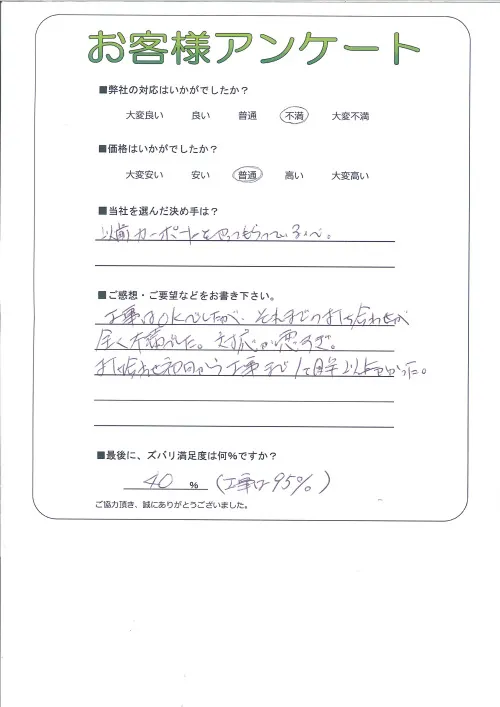 お客様アンケート
■弊社の対応はいかがでしたか?
大変良い 良い 普通 不満 大変不満
■価格はいかがでしたか?
大変安い 安い 普通 高い 大変高い
■当社を選んだ決め手は?
以前カーポートをやってもらっている
■ご感想・ご要望などをお書き下さい。
工事はOKでしたが、それまでの打ち合わせが
全く不満でした。対応が悪すぎ。
打ち合わせ初回から工事まで1ヶ月半以上かかった。
■最後に、ズバリ満足度は何%ですか?
40 % (工事は95%)
ご協力頂き、誠にありがとうございました。